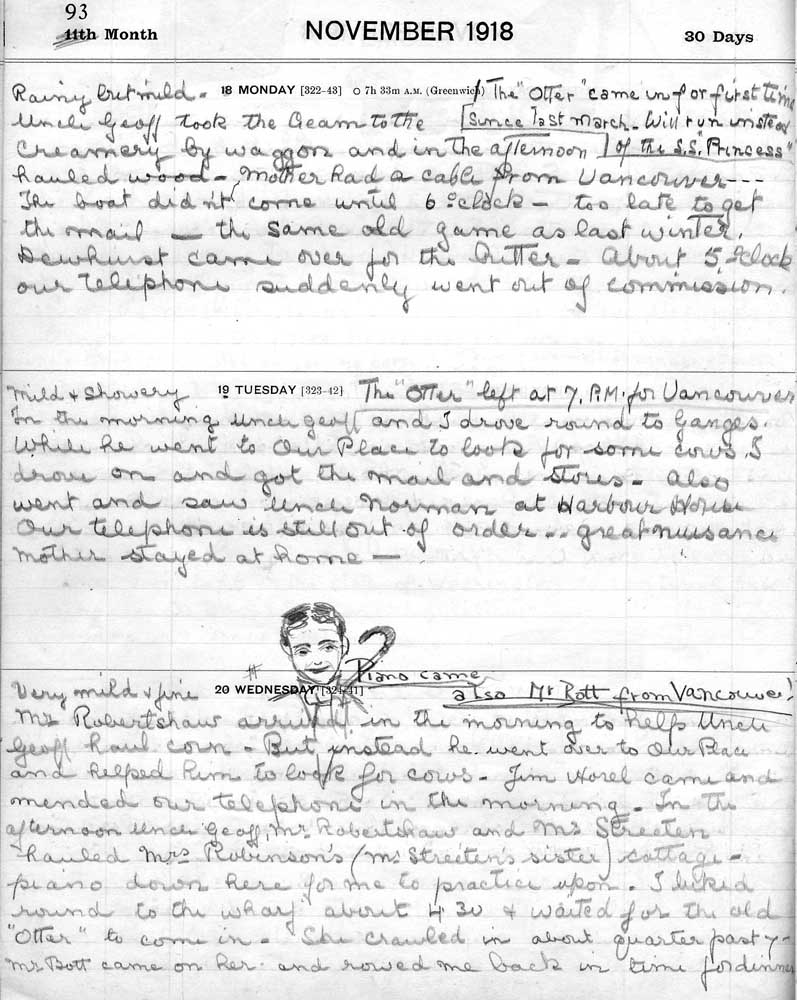 93
11th Month NOVEMBER 1918 30 Days
Rainy but mild - 18 MONDAY [322-43] O 7h 33m A.M. (Greenwich) The "Otter" came in for first time
Uncle Geoff took the cream to the since last March. Will run instead
Creamery by waggon and in the afternoon of the S.S. "Princess"
hauled wood - Mother had a cable from Vancouver ---
The boat didn't come until 6 o'clock - too late to get
the mail - the same old game as last winter.
Dewhurst came over for the butter - About 5 o'clock
our telephone suddenly went out of commission.
Mild & Showery 19 TUESDAY [323-42] The "Otter" left at 7. P.M. for Vancouver
In the morning Uncle Geoff and I drove round to Ganges.
While he went to Our Place to look for some cows I
drove on and got the mail and stores - Also
went and saw Uncle Norman at Harbour House
Our telephone is still out of order -- great nuisance
Mother stayed at home -
Piano came
Very mild & fine 20 WEDNESDAY [324-41] also Mr Bott from Vancouver!
Mr Robertshaw arrived in the morning to help Uncle
Geoff haul corn - But instead he went over to Our Place
and helped him to look for cows - Jim Horel came and
mended our telephone in the morning - In the
afternoon Uncle Geoff, Mr Robertshaw and Mr Streeten
hauled Mrs Robinson's (Mr Streeten's sister) cottage -
piano down here for me to practice upon. I biked
round to the wharf about 4 30 & waited for the old
"Otter" to come in - She crawled in about quarter past 7 -
Mr Bott came on her and rowed me back in time for dinner